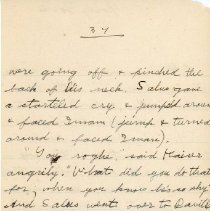 37
were going off & pinched the
back of his neck. Salus gave
a startled cry & jumped around
& faced Imam (jump & turned
around & faced Imam).
"You roghe", said Maier
angrily. "What did you do that
for, when you know his so shy
And Salus went over to David